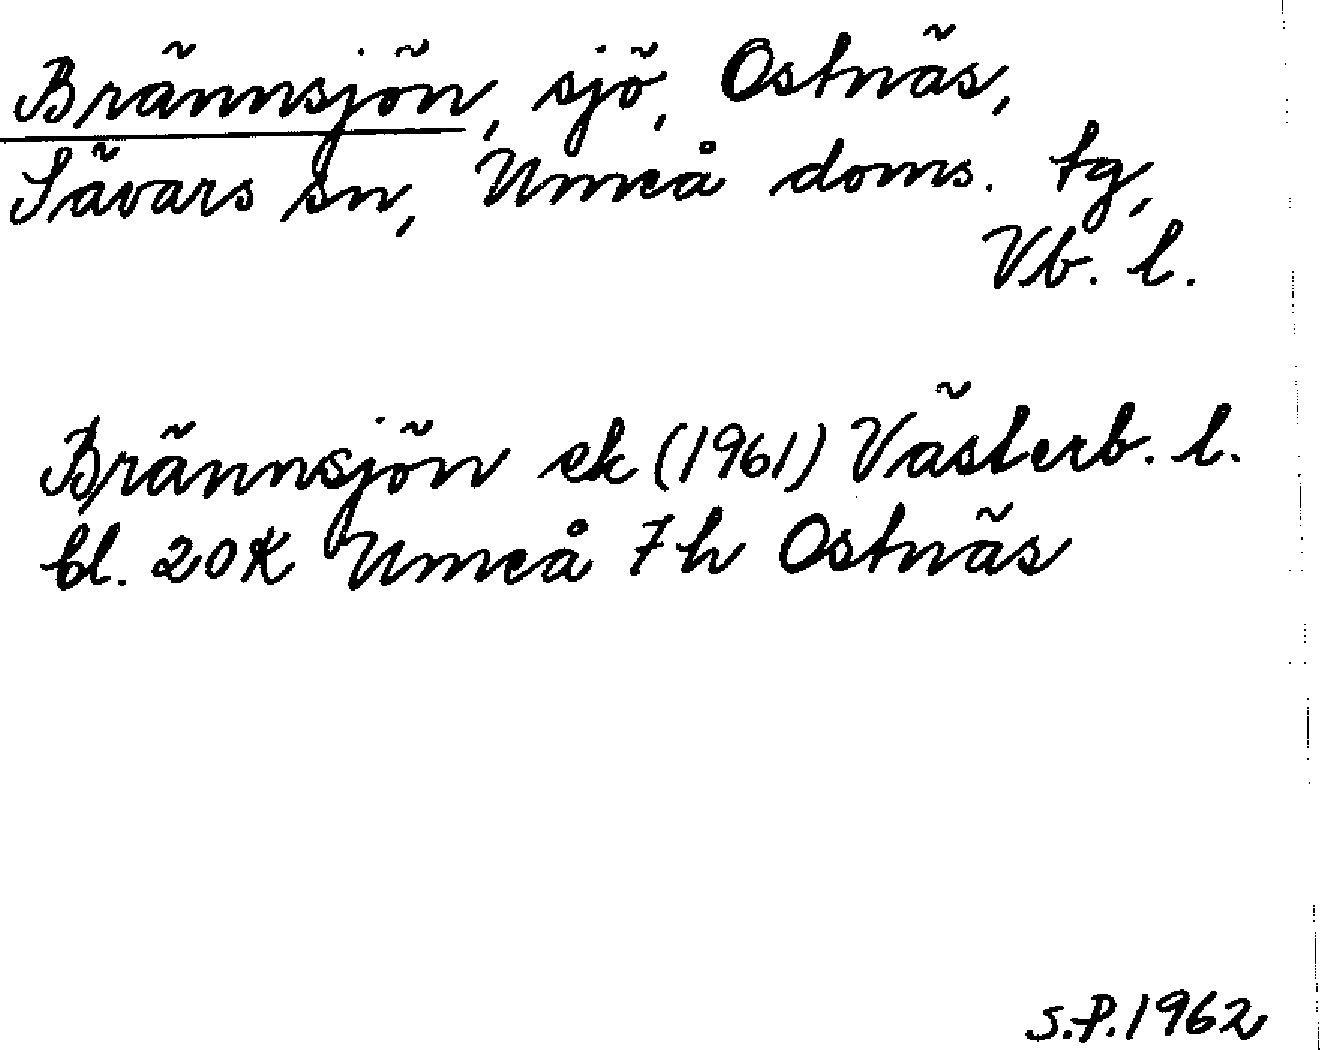 Brännsjön, sjö, Ostnäs,
Sävars sn, Umeå doms. tg,
Vb. l.
Brännsjön ek (1961) Västerb. l.
bl. 20K Umeå 7h Ostnäs
S.P. 1962